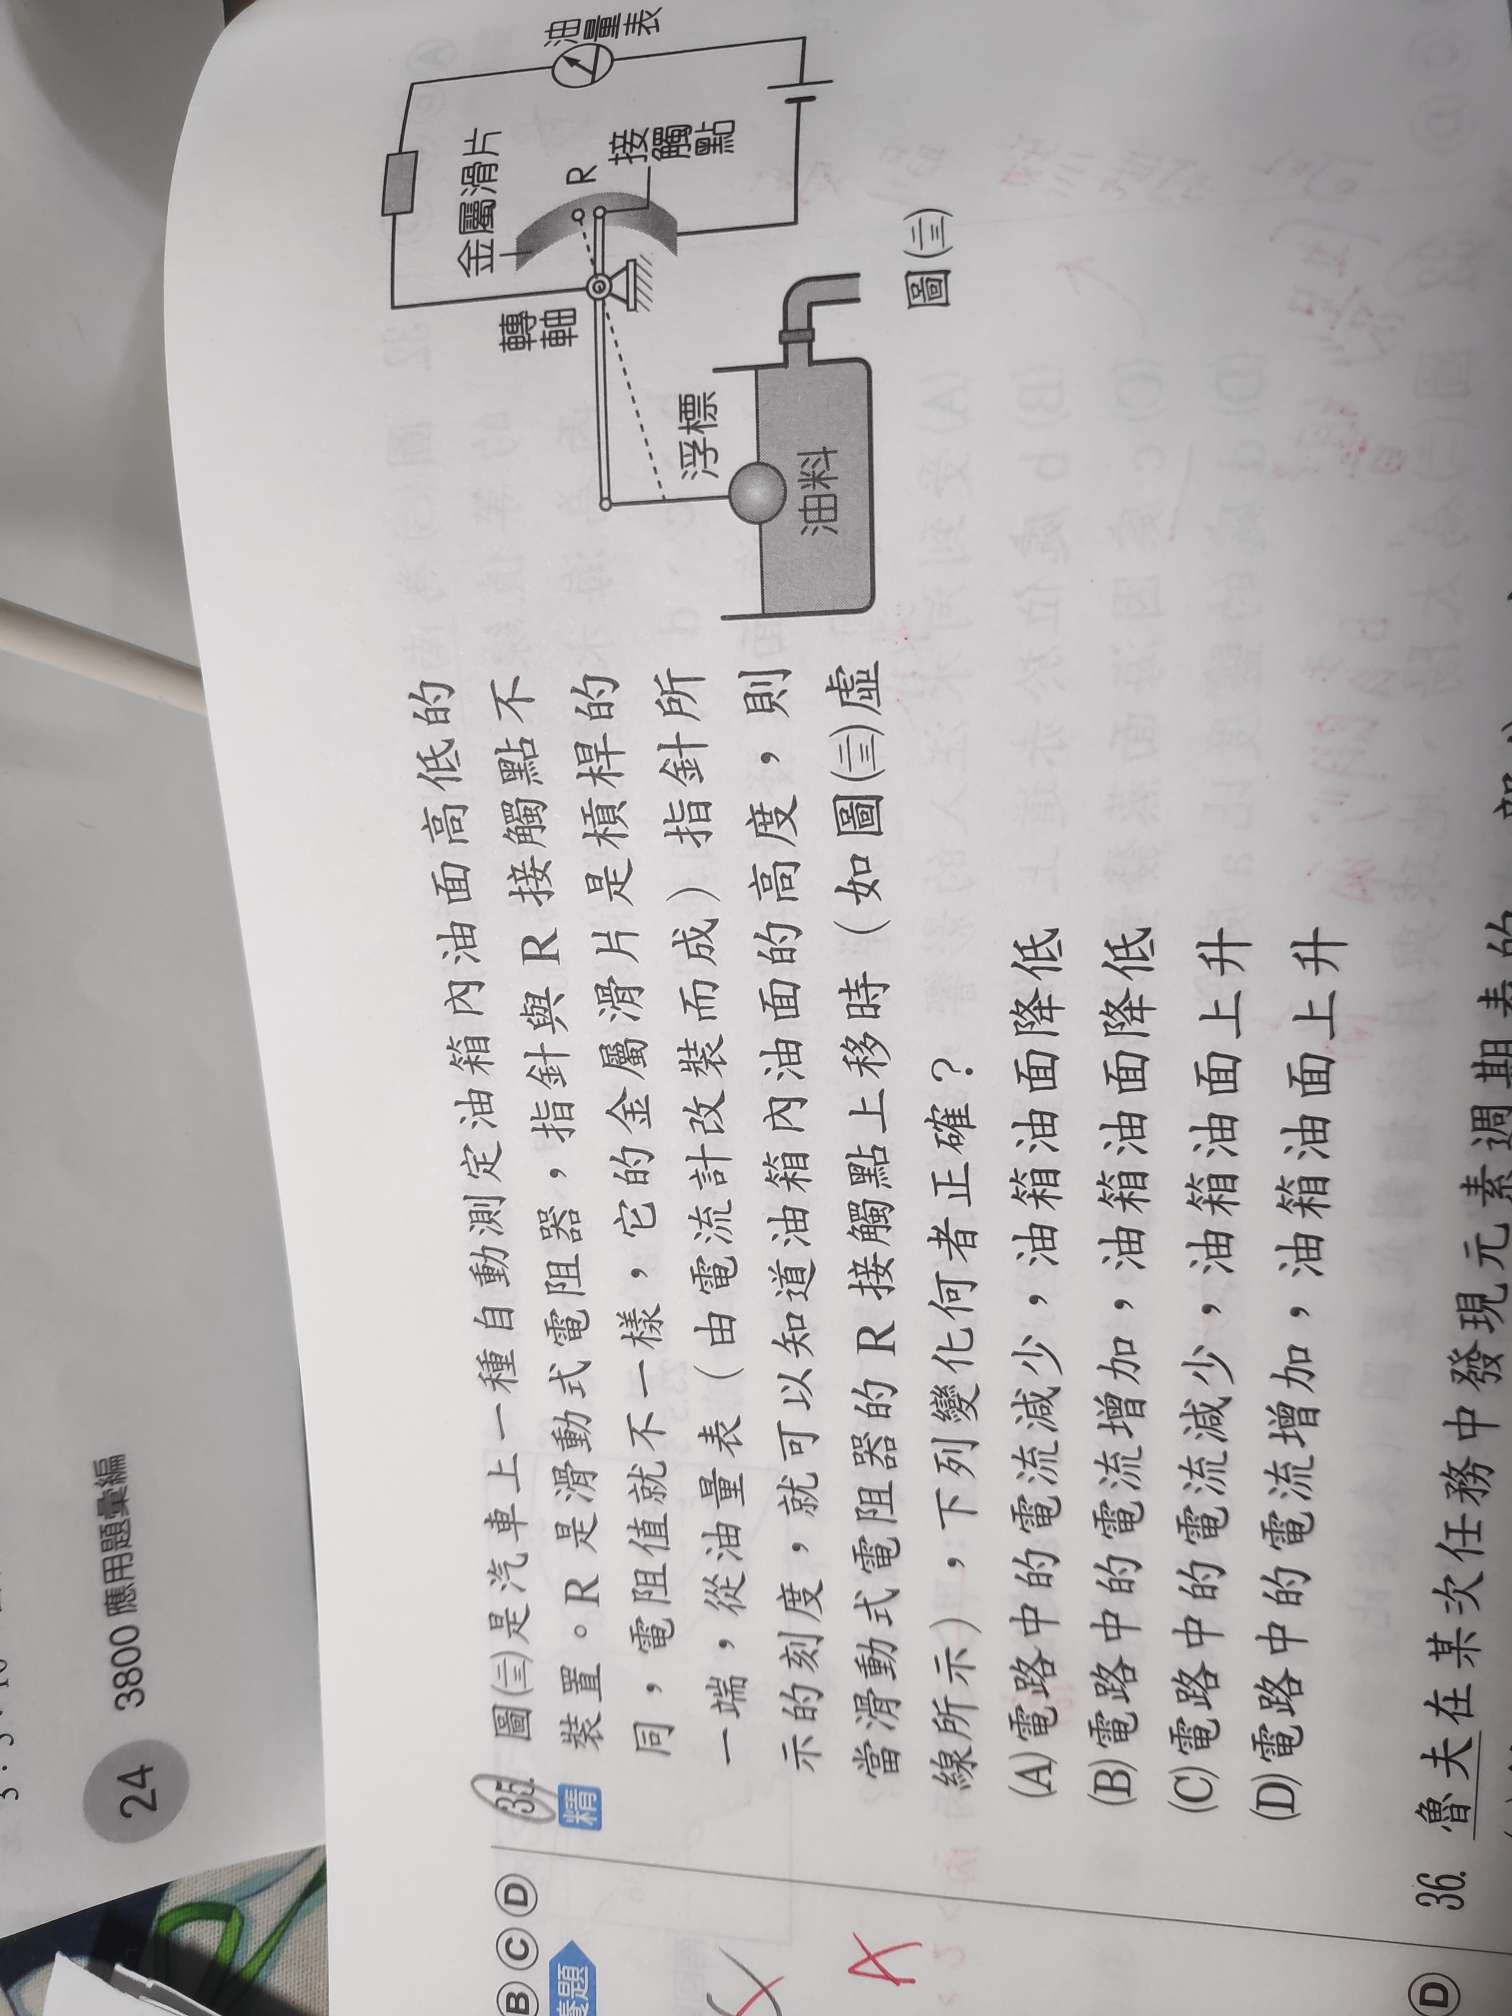 24 3800應用題彙編
B C D
35. 圖(三)是汽車上一種自動測定油箱內油面高低的
精 裝置。R 是滑動式電阻器，指針與 R 接觸點不
同，電阻值就不一樣，它的金屬滑片是槓桿的
一端，從油量表（由電流計改裝而成）指針所
示的刻度，就可以知道油箱內油面的高度，則
當滑動式電阻器的 R 接觸點上移時（如圖(三)虛
線所示），下列變化何者正確？
(A)電路中的電流減少，油箱油面降低
(B)電路中的電流增加，油箱油面降低
(C)電路中的電流減少，油箱油面上升
(D)電路中的電流增加，油箱油面上升
A
金屬滑片
油量表
R
接觸點
轉軸
浮標
油料
圖(三)
D
36. 魯夫在某次任務中發現元素週期表的